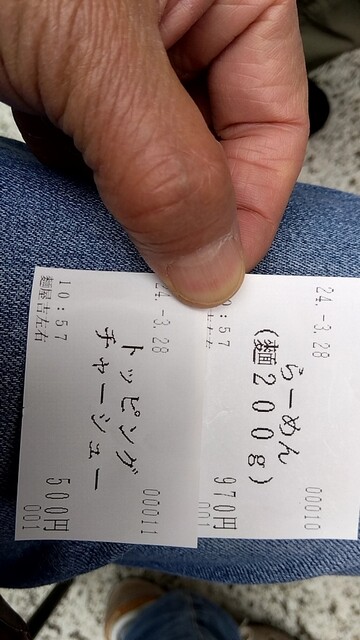 24.-3.28
らーめん
(麺200g)
00010
970円
001
:57
4.-3.28
10:57
麺屋吉左右
トッピング
チャーシュー
00011
500円
001